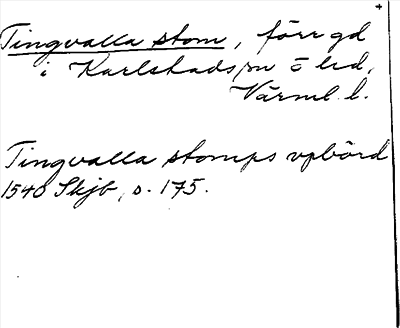 Tingvalla stom, förr gd
i Karlstads sn o hd,
Värml. l.
Tingvalla stomps vpbörd
1540 Skjb, s. 175.